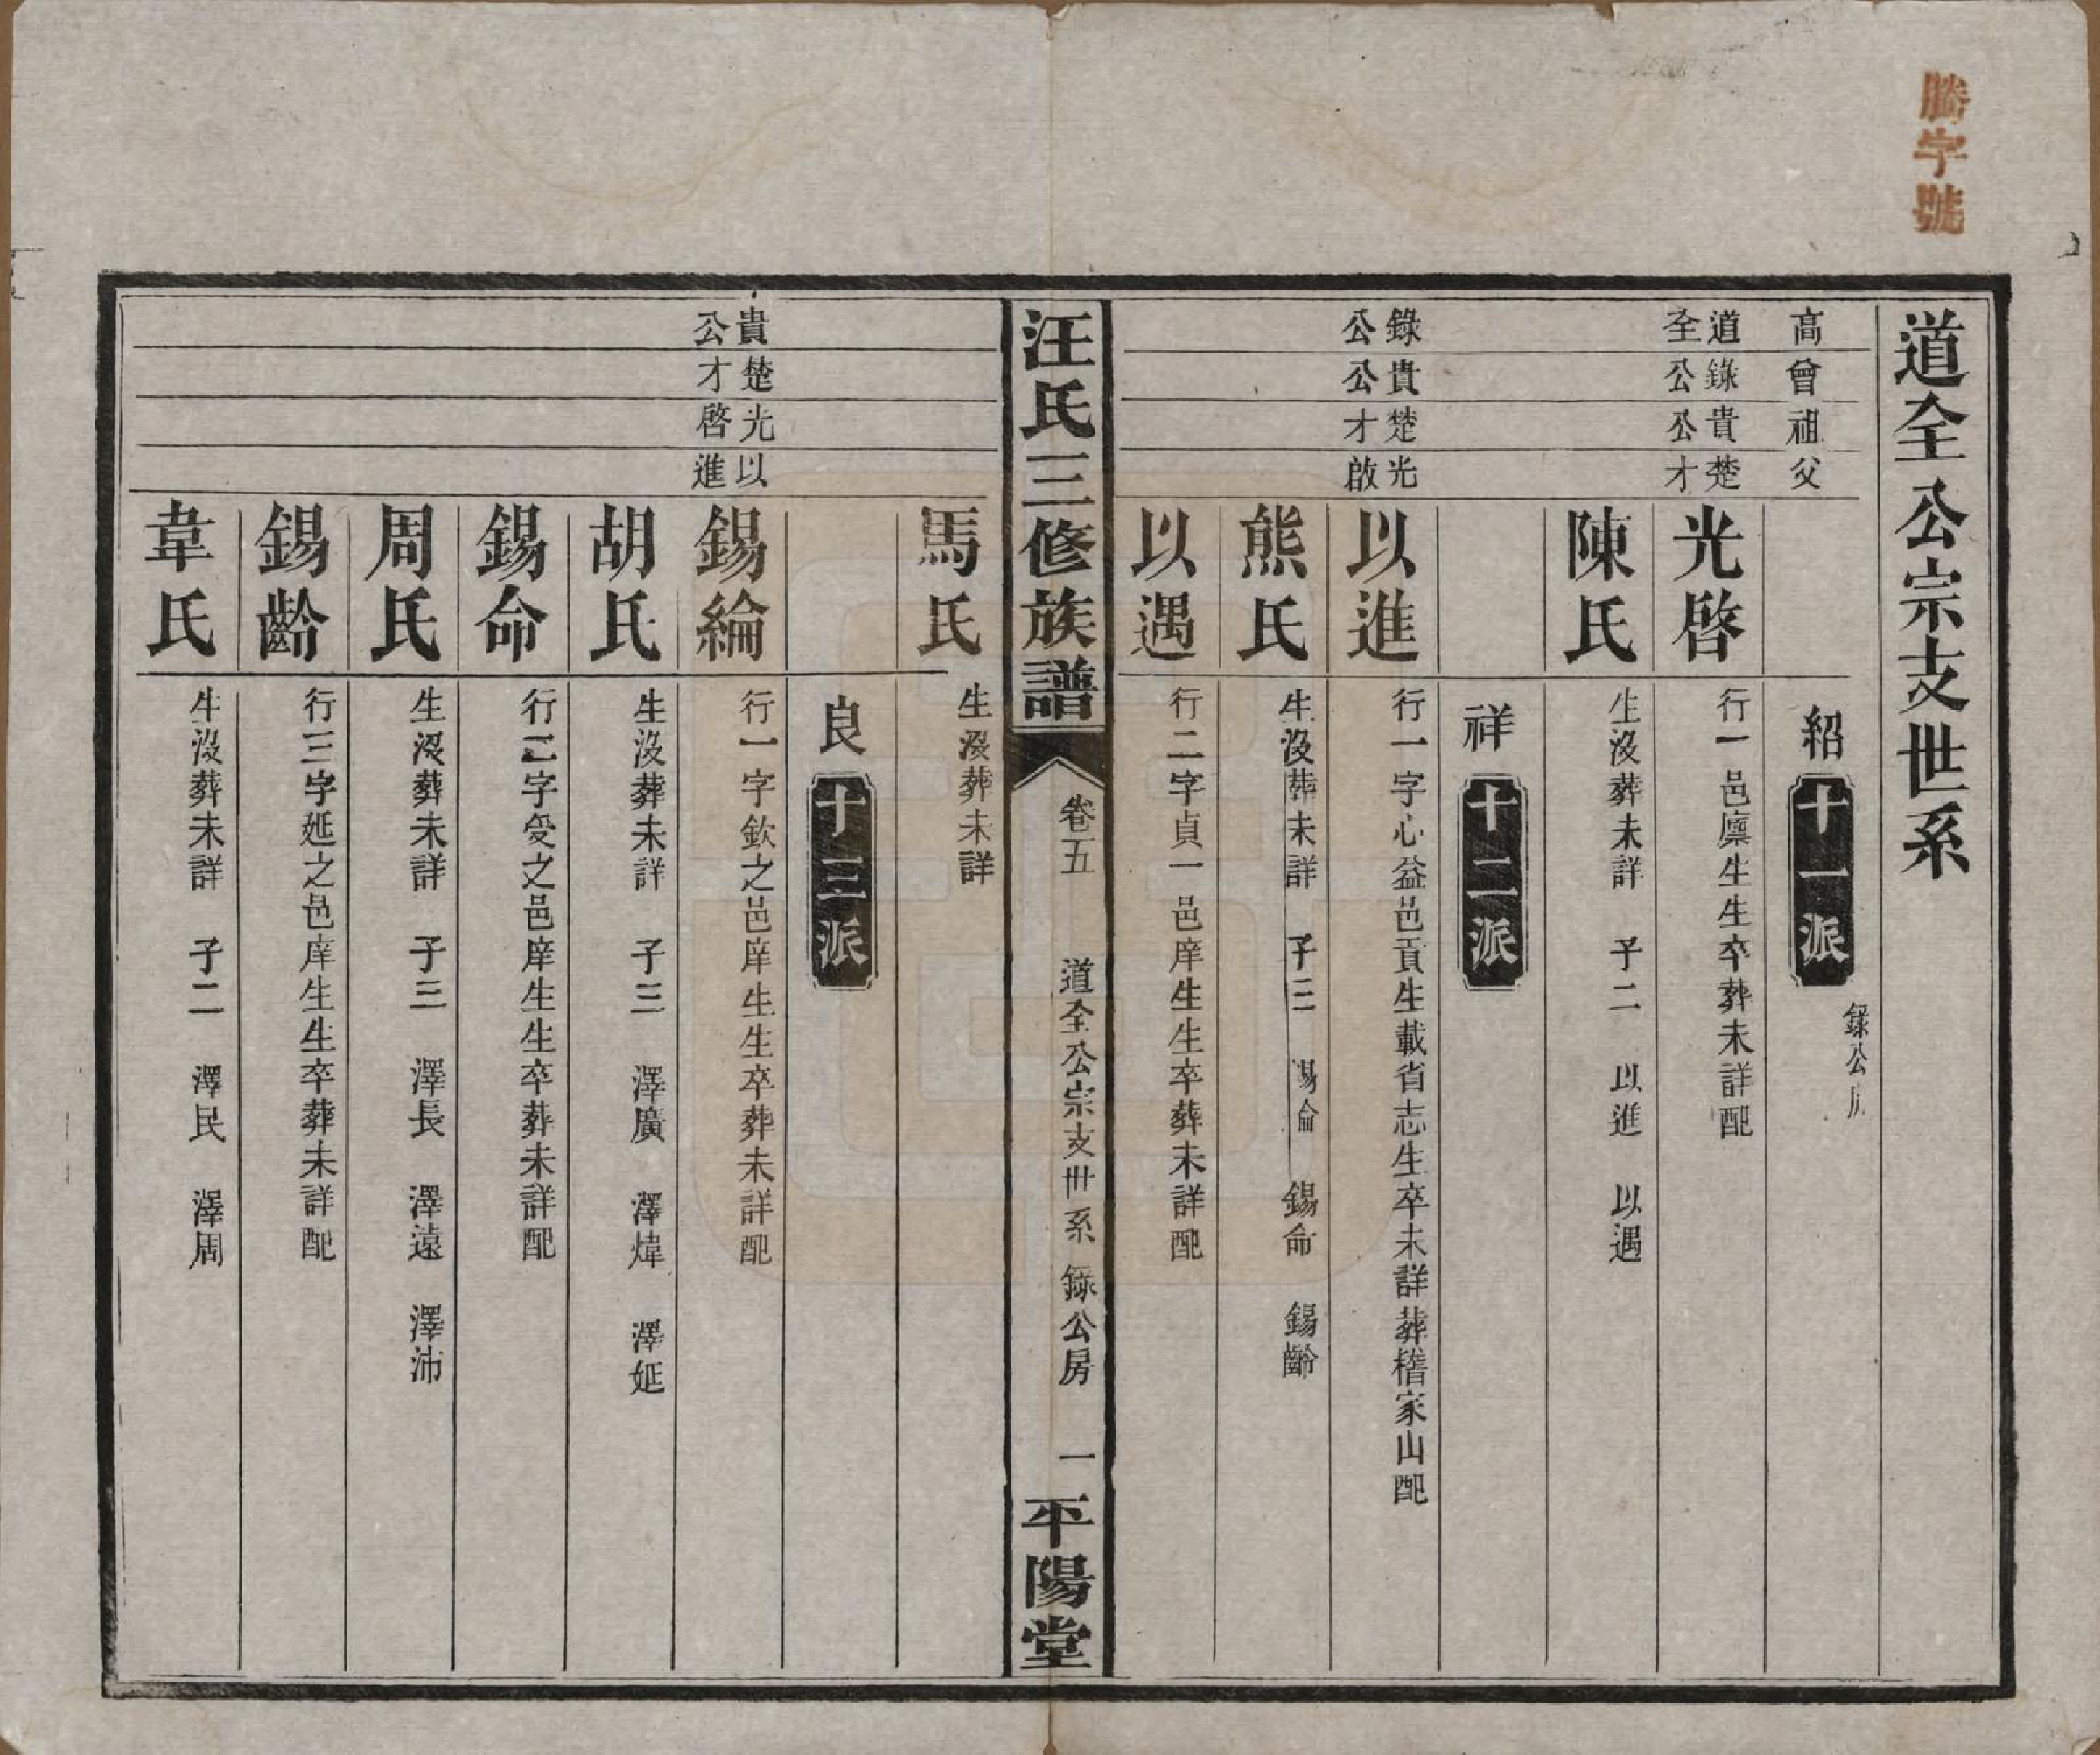 騰字號
道全公宗支世系
高 曾 祖 父
紹 十一派
錄公
道全 錄公 貴公 楚才
光啓
行一邑廩生生卒葬未詳配
陳氏
生沒葬未詳 子二 以進 以遇
祥 十二派
錄公 貴公 楚才 光啟
以進
行一字心益邑貢生載省志生卒未詳葬稽家山配
熊氏
生沒葬未詳 子三 錫命 錫齡
以遇
行二字貞一邑庠生生卒葬未詳配
汪氏三修族譜
卷五 道全公宗支世系 錄公房 一
平陽堂
馬氏
生沒葬未詳
良 十三派
貴公 楚才 光啓 以進
錫綸
行一字欽之邑庠生生卒葬未詳配
胡氏
生沒葬未詳 子三 澤廣 澤煒 澤延
錫命
行二字受之邑庠生生卒葬未詳配
周氏
生沒葬未詳 子三 澤長 澤遠 澤沛
錫齡
行三字延之邑庠生生卒葬未詳配
韋氏
生沒葬未詳 子二 澤民 澤周